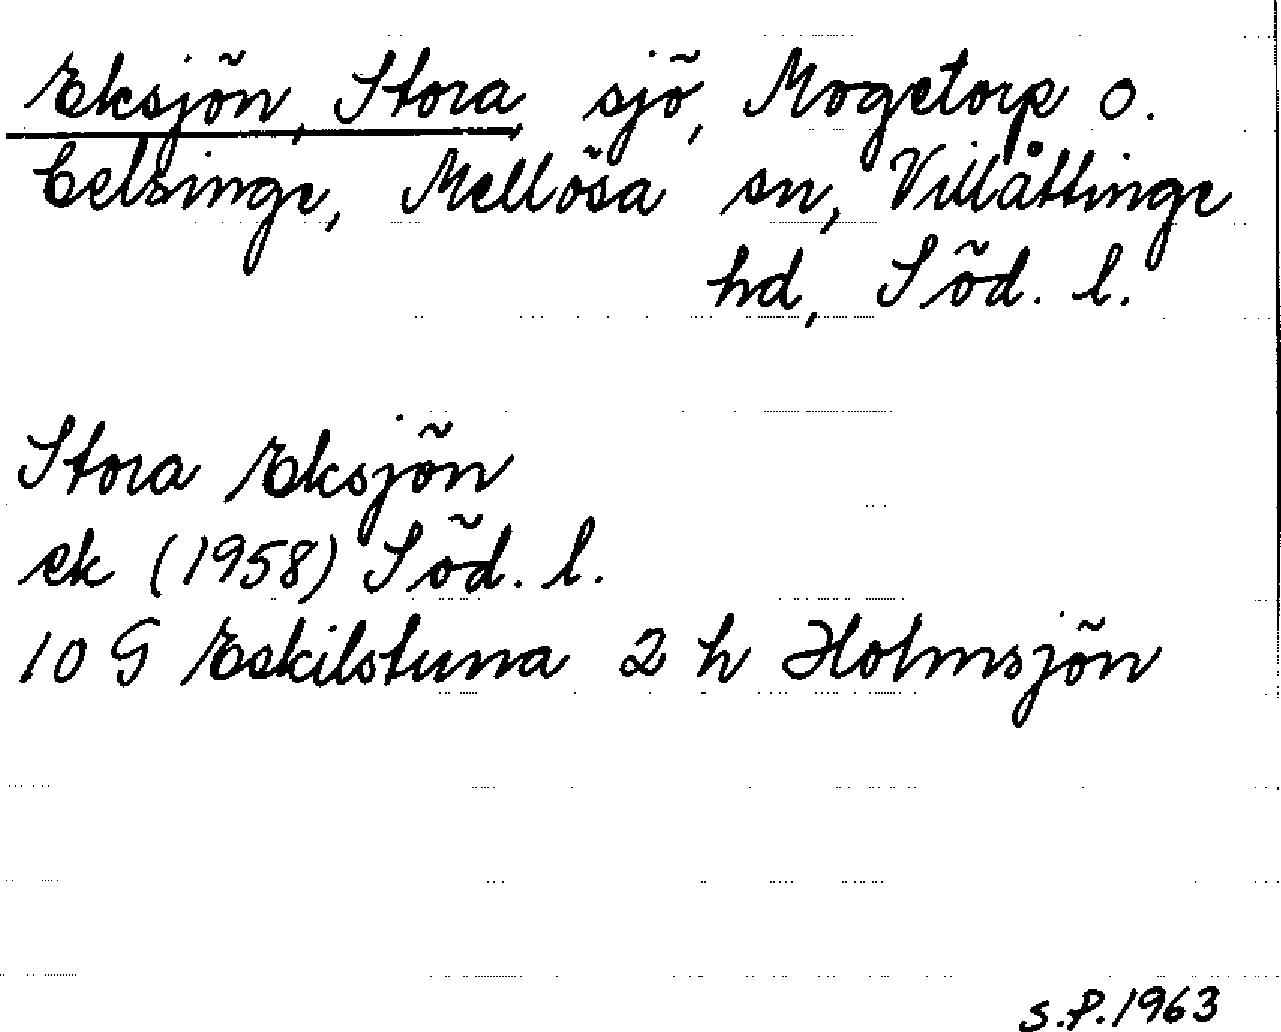 Eksjön, Stora, sjö, Mogetorp o.
Celsinge, Mellösa sn, Villåttinge
hd, Söd. l.
Stora Eksjön
ek (1958) Söd. l.
10 G Eskilstuna 2 h Holmsjön
S.P. 1963